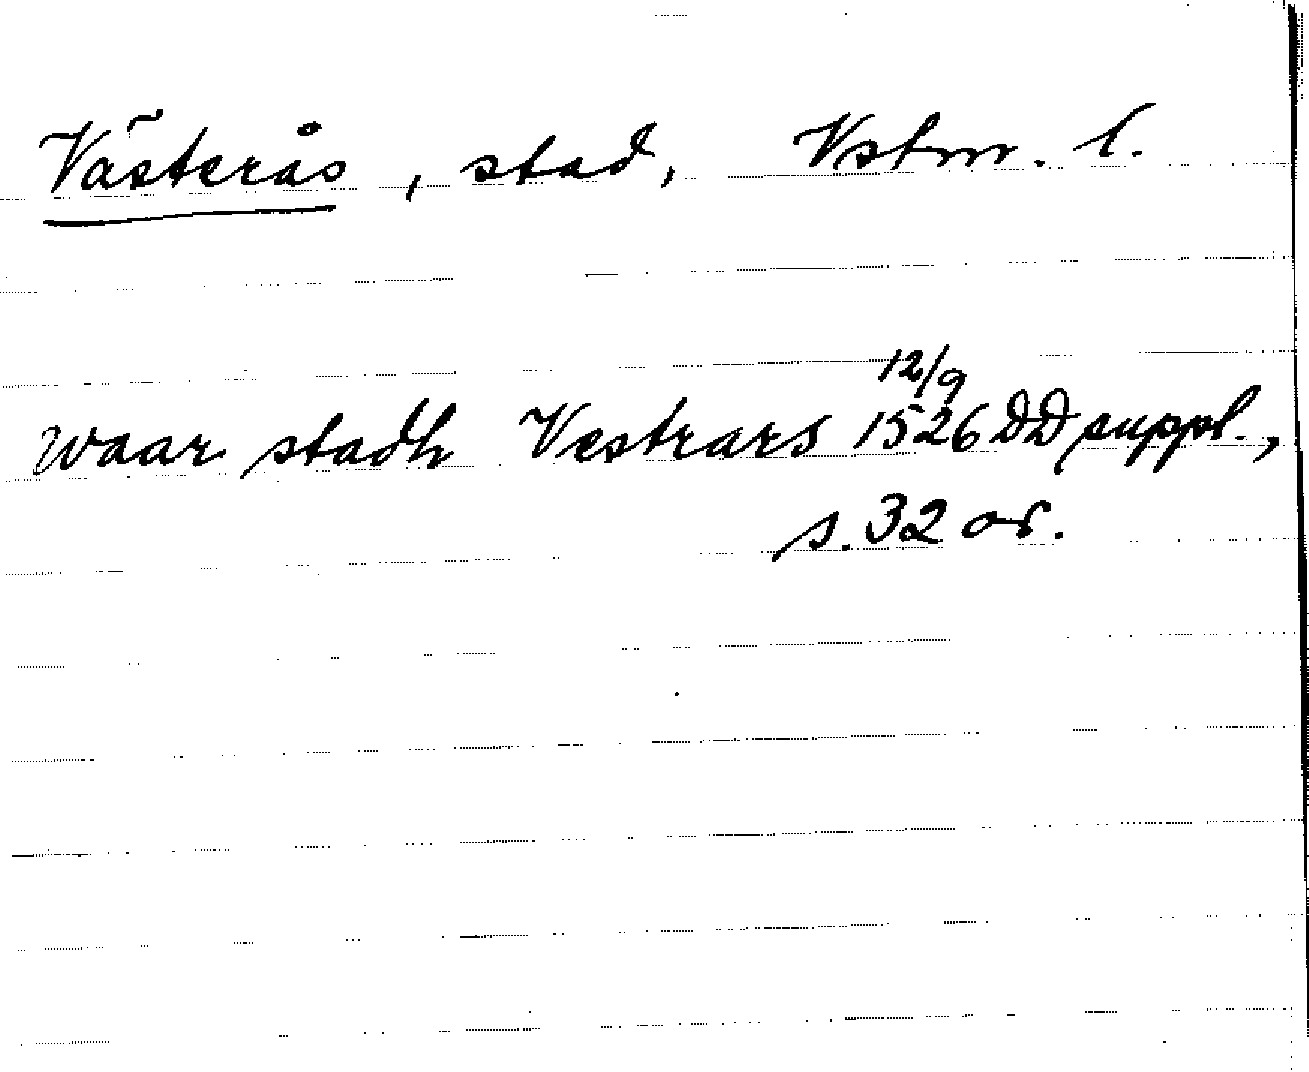 Västerås, stad, Vstm. l.
12/9
waar stadh Vestrars 1526 DD suppl.,
s. 32 or.